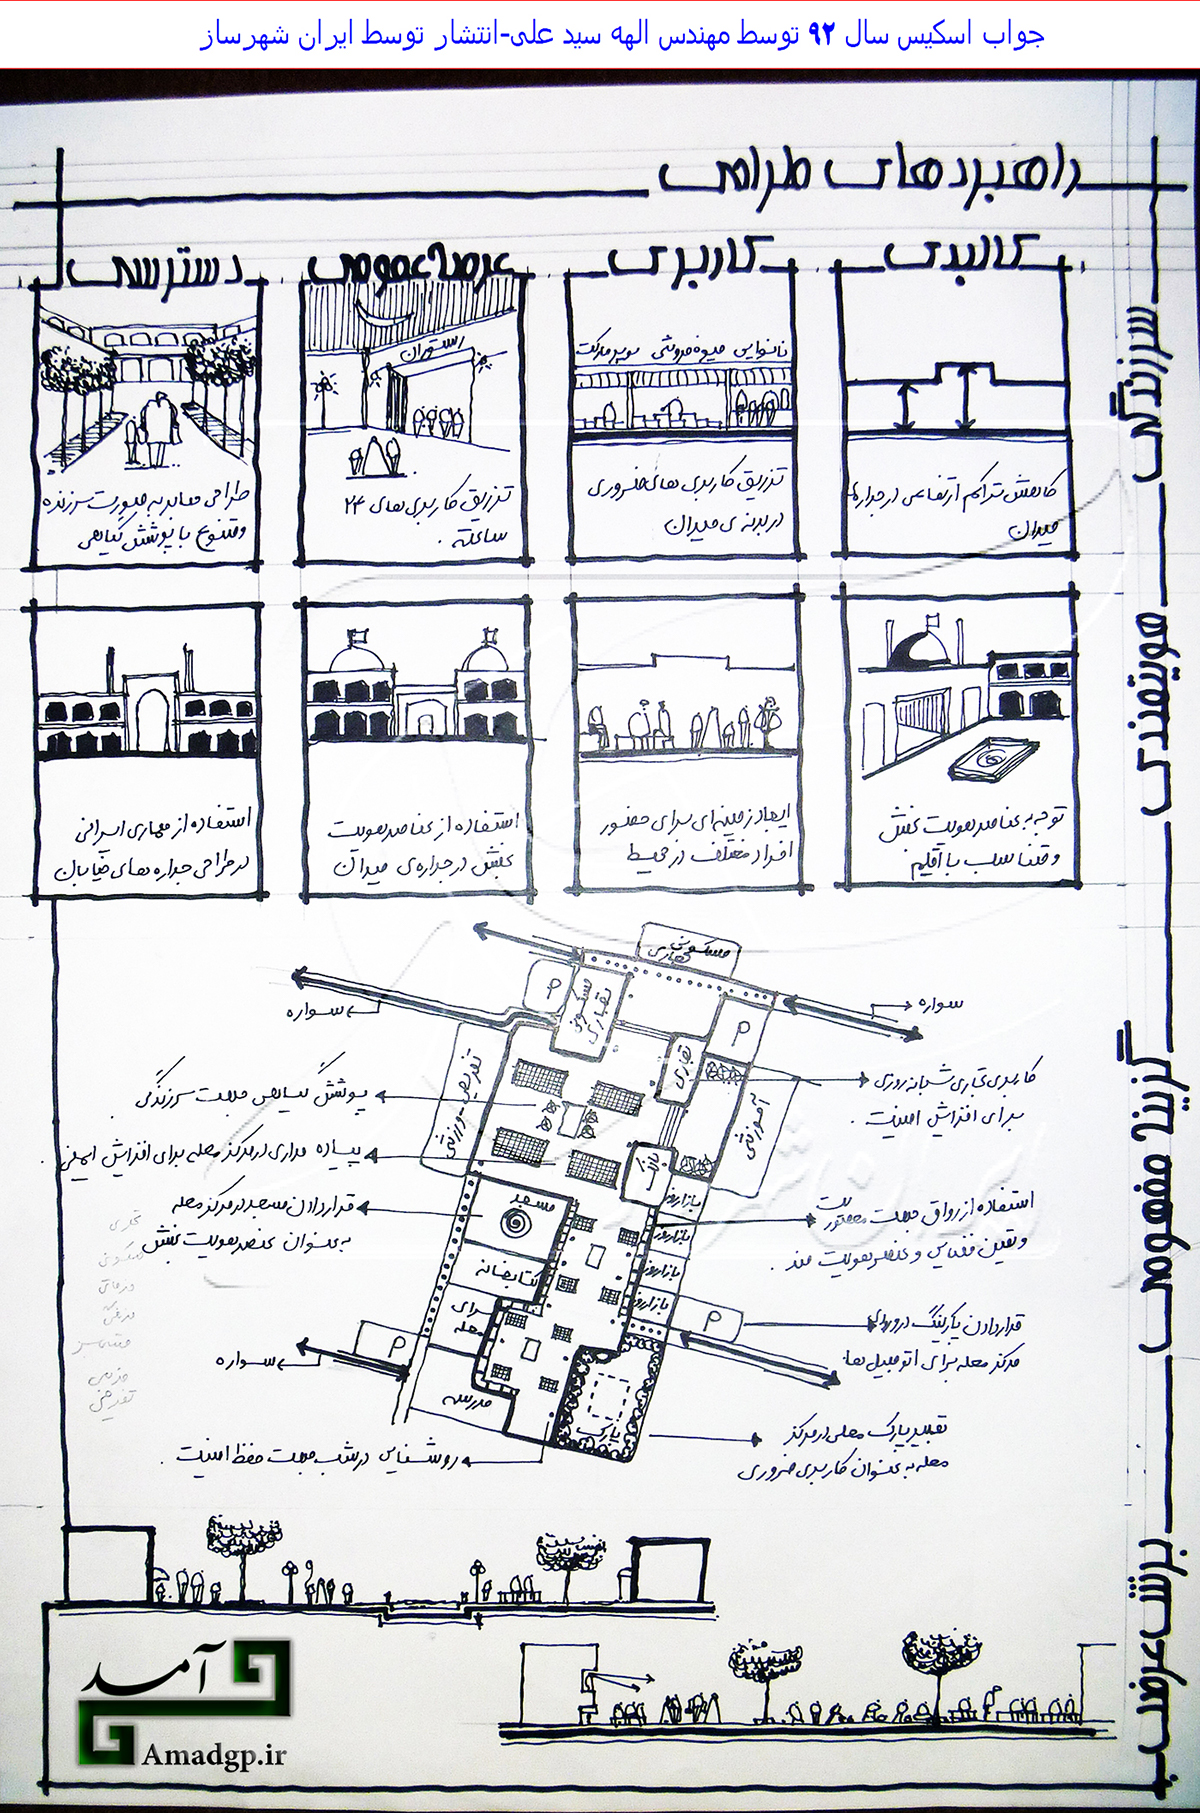 جواب اسکیس سال ۹۲ توسط مهندس الهه سید علی-انتشار توسط ایران شهرساز
راهبردهای طراحی
کالبدی
کاربری
عرصه عمومی
دسترسی
سرزندگی
نانوایی میوه فروشی سوپرمارکت
رستوران
کاهش تراکم ارتفاعی در جداره‌ی
میدان
تزریق کاربری های ضروری
در بدنه ی میدان
تزریق کاربری های ۲۴
ساعته .
طراحی معابر به صورت سرزنده
و متنوع با پوشش گیاهی
هویتمندی
توجه به عناصر هویت بخش
و متناسب با اقلیم
ایجاد زمینه ای برای حضور
افراد مختلف در محیط
استفاده از عناصر هویت
بخش در جداره ی میدان
استفاده از معماری ایرانی
در طراحی جداره های خیابان
گزینه مفهومی
مسکونی
تجاری
مسکونی
تجاری
P
P
تجاری
آموزشی
تفریحی-ورزشی
سواره
سواره
کاربری تجاری شبانه روزی
برای افزایش امنیت .
پوشش گیاهی جهت سرزندگی .
پیاده مداری در مرکز محله برای افزایش ایمنی .
قرار دادن مسجد در مرکز محله
به عنوان عنصر هویت بخش
مسجد
کتابخانه
سرای
محله
مدرسه
بازارروز
بازارروز
بازارروز
بازارروز
استفاده از رواق جهت محصوریت
و تعین فضایی و عنصر هویت مند .
P
P
سواره
قرار دادن پارکینگ در ورودی
مرکز محله برای اتومبیل ها
پارک
تعبیر پارک محلی در مرکز
محله به عنوان کاربری ضروری
روشنایی در شب جهت حفظ امنیت .
برش عرضی
آمد
Amadgp.ir